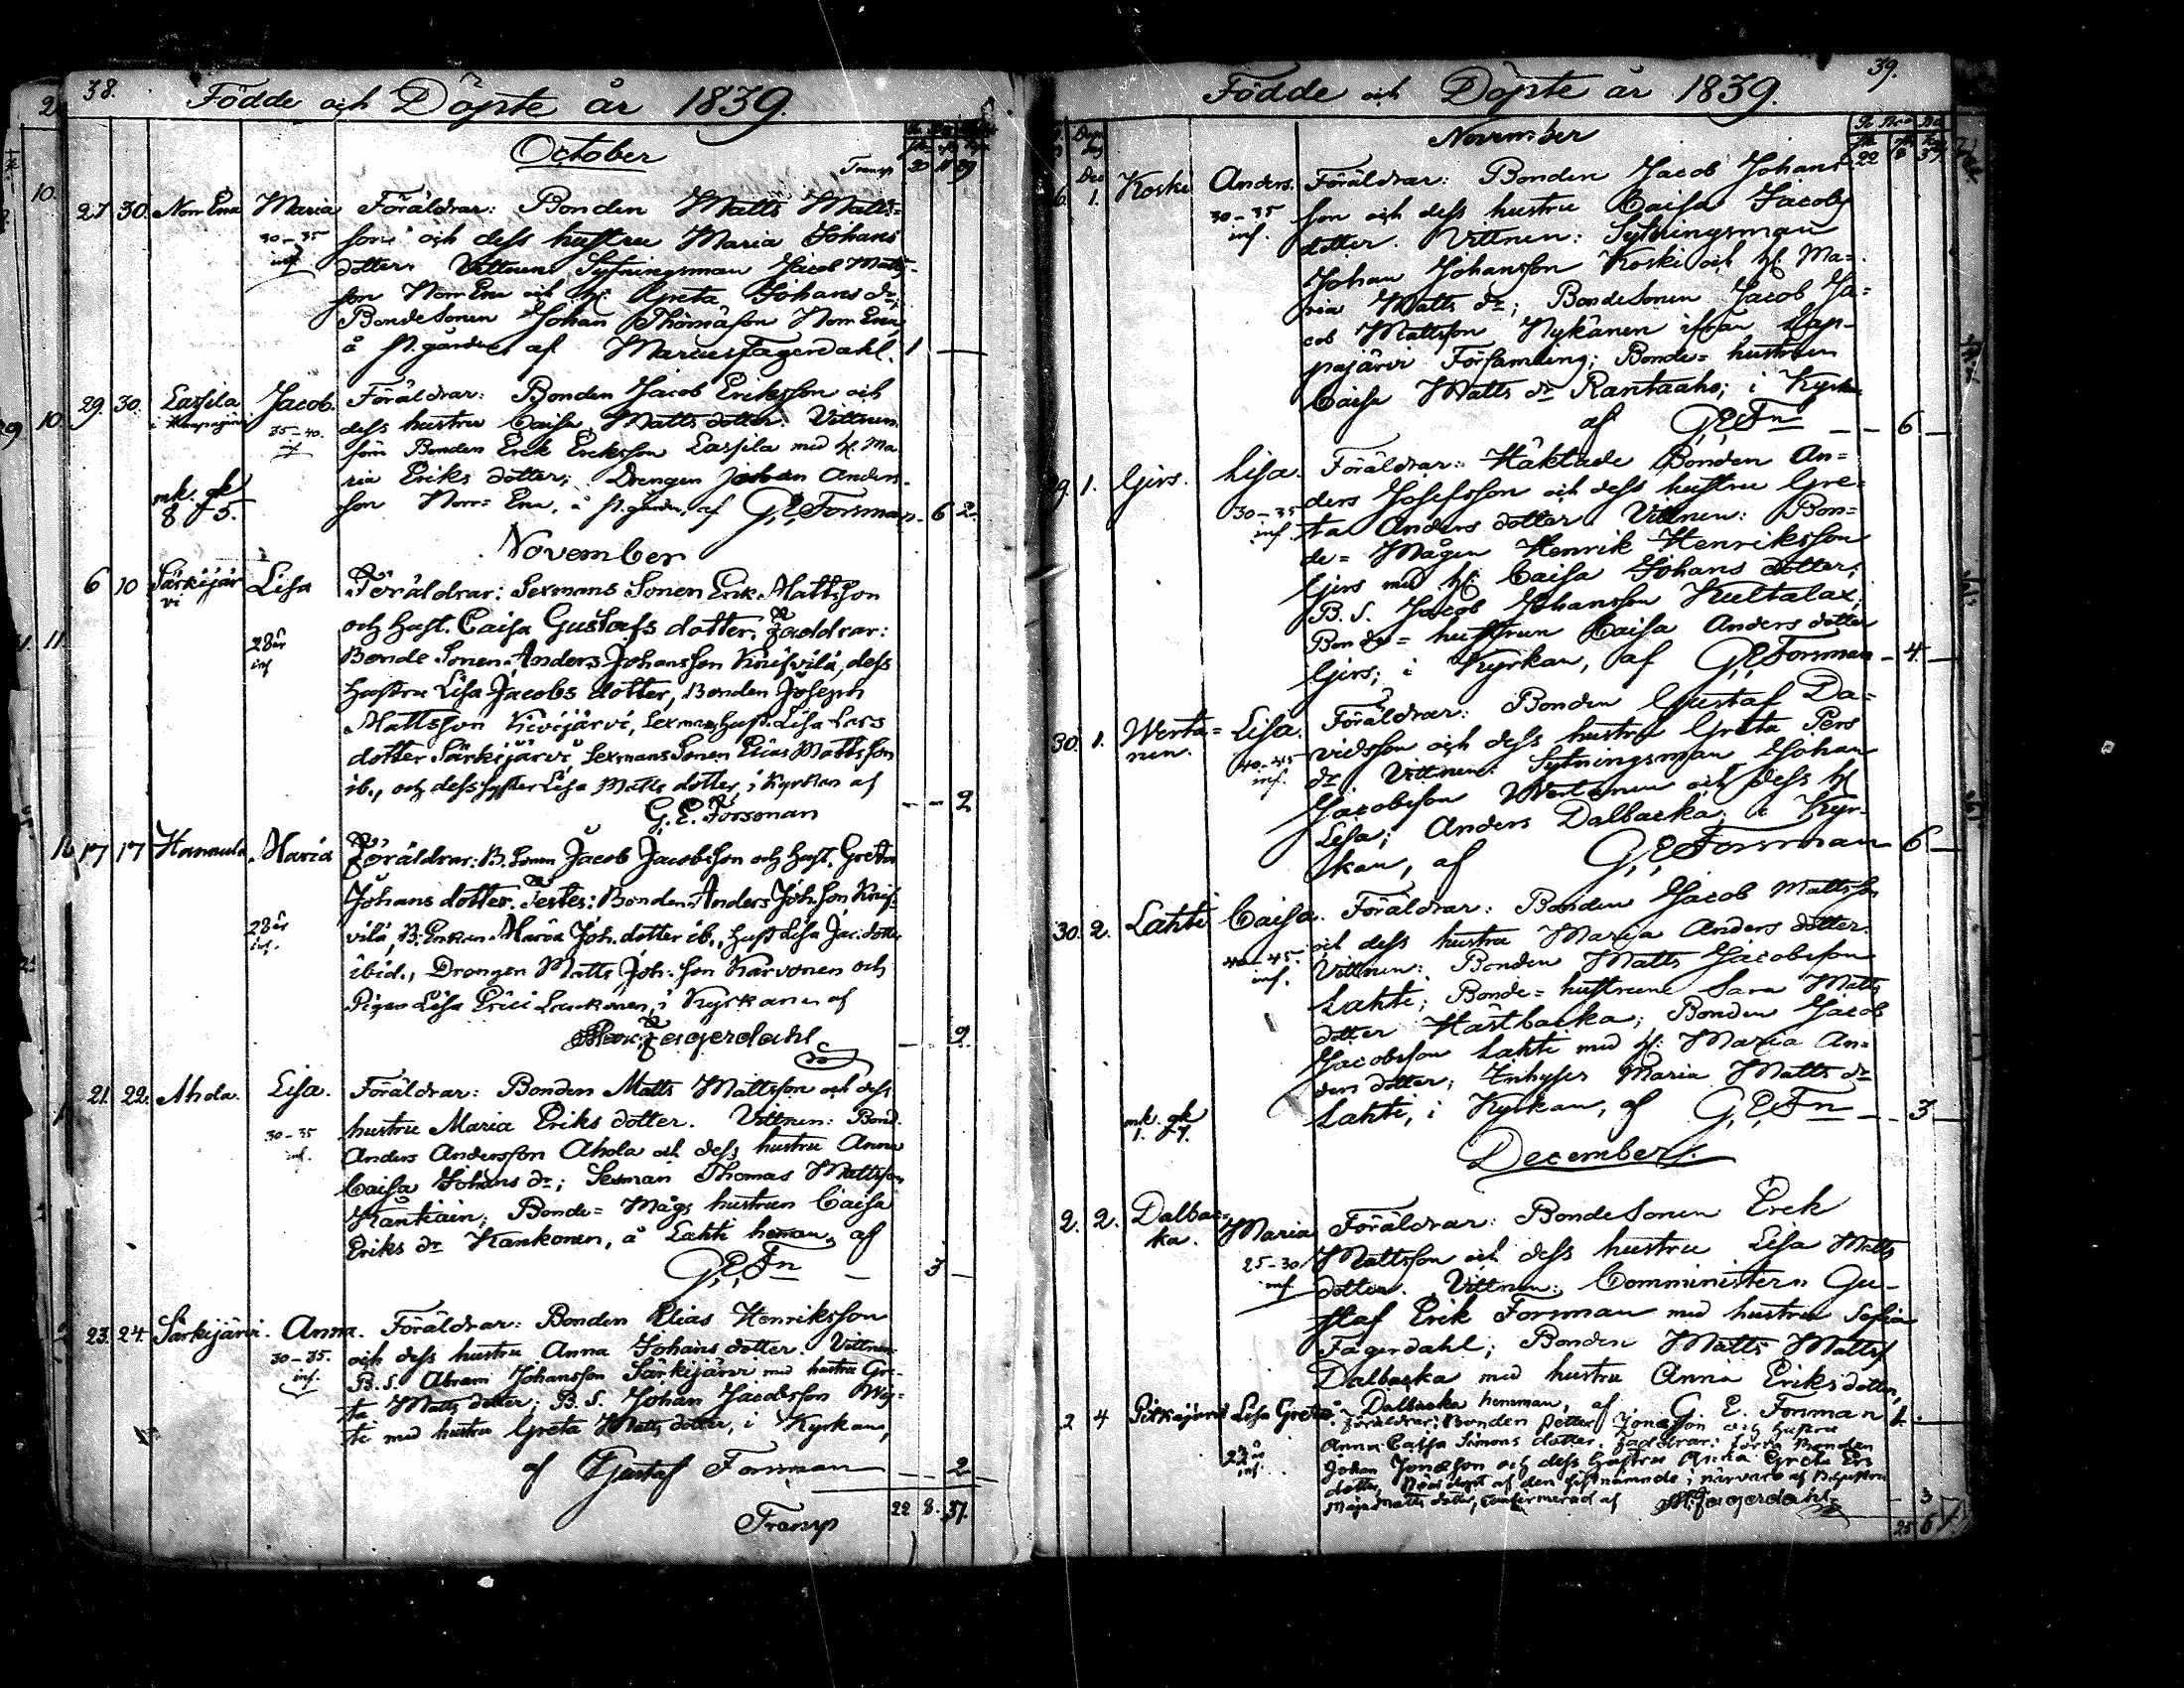 38.
Födde och Döpte år 1839.
October
Transp 20 11 39
27 30. Norr Ena Maria Föräldrar: Bonden Matts Matts=
30–35 son och dess hustru Maria Johans
inf. dotter. Vittnen Sytningsman Jacob Matts-
son Norr Ena och H: Greta Johans dr;
BondeSonen Johan Thomasson Norr Ena
å Pr.gården af Marcus Fagerdahl. 1 —
29. 30. Lassila Jacob. Föräldrar: Bonden Jacob Eriksson och
35–40. dess hustru Caisa Matts dotter. Vittnen
inf son Bonden Erik Eriksson Lassila med H: Ma
ria Eriks dotter; Drengen Johan Anders-
mk. qk son Norr= Ena, å Pr.gården, af G. E. Forsman. 6 2.
8. 5.
November
6 10 Särkijär Lisa Föräldrar: Sexmans Sonen Erik Mattsson
vi och Hust. Caisa Gustafs dotter. Faddrar:
28 år Bonde Sonen Anders Johansson Knifvilä, dess
inf Hustru Lisa Jacobs dotter, Bonden Joseph
Mattsson Kivijärvi, Sexmans Hust. Lisa Lars
dotter Särkijärvi, Sexmans Sonen Elias Mattsson
ib., och dess syster Lisa Matts dotter, i Kyrkan af
G. E. Forsman — — 2
17 17 Hannula Maria Föräldrar: B. Sonen Jacob Jacobsson och Hust. Greta
Johans dotter. Testes: Bonden Anders Joh. son Knif-
28 år vilä, B: Enkan Maria Joh. dotter ib., Hust Lisa Jac. dotter
inf. ibid., Drengen Matts Joh. son Karvonen och
Pigan Lisa Erici Luckonen, i Kyrkan af
Marc. Fagerdahl — 9.
21. 22. Ahola. Lisa. Föräldrar: Bonden Matts Mattsson och dess
30–35 hustru Maria Eriks dotter. Vittnen: Bond.
inf. Anders Andersson Ahola och dess hustru Anna
Caisa Johans dr; Sexman Thomas Mattsson
Kankain; Bonde= Mågs hustrun Caisa
Eriks dr Kankonen, å Lahti heman, af
G. E. Fn — 3 —
23. 24. Särkijärvi. Anna. Föräldrar: Bonden Elias Henriksson
30–35. och dess hustru Anna Johans dotter. Vittnen
inf. B. S. Abram Johansson Särkijärvi med hustru Gre-
ta Matts dotter; B. S. Johan Jacobsson Wi-
ti med hustru Greta Matts dotter, i Kyrkan,
af Gustaf Forsman — — 2.
Transp 22 8. 37.
39.
Födde och Döpte år 1839.
November
22 8 37
Dec
26. 1. Koski Anders. Föräldrar: Bonden Jacob Johans=
30–35 son och dess hustru Caisa Jacobs
inf. dotter. Vittnen: Sytningsman
Johan Johansson Koski och H: Ma=
ria Matts dr; BondeSonen Jacob Ja=
cob Mattsson Nykänen ifrån Lap-
pajärvi Församling; Bonde= hustrun
Caisa Matts dr Rantaaho; i Kyrkan
af G. E. Fn — — 6 —
29. 1. Girs. Lisa. Föräldrar: Häktade Bonden An=
30–35 ders Josefsson och dess hustru Gre=
inf. ta Anders dotter. Vittnen: Bon=
de= Mågen Henrik Henriksson
Girs med H: Caisa Johans dotter;
B. S. Jacob Johansson Kultalax;
Bonde= hustrun Caisa Anders dotter
Girs; i Kyrkan, af G. E. Forsman — 4. —
30. 1. Werta= Lisa. Föräldrar: Bonden Gustaf Da=
nen. 40–45 vidsson och dess hustru Greta Pers
inf. dr. Vittnen: Sytningsman Johan
Jacobsson Wertanen och dess H:
Lisa; Anders Dalbacka; i Kyr-
kan, af G. E. Forsman 6 —
30. 2. Lahti Caisa. Föräldrar: Bonden Jacob Mattsson
40–45. och dess hustru Maria Anders dotter.
inf. Vittnen: Bonden Matts Jacobsson
Lahti; Bonde= hustrun Sara Matts
dotter Hästbacka; Bonden Jacob
Jacobsson Lahti med H: Maria An=
ders dotter; Inhyses Maria Matts dr
mk. qk Lahti, i Kyrkan, af G. E. Fn — — 3 —
1. 7.
December.
2. 2. Dalbac= Maria Föräldrar: BondeSonen Erik
ka. 25–30 Mattsson och dess hustru Lisa Matts
inf dotter. Vittnen: Comministern Gu-
staf Erik Forsman med hustru Sofia
Fagerdahl; Bonden Matts Matts
Dalbacka med hustru Anna Eriks dotter,
å Dalbacka hemman, af G. E. Forsman 1.
2 4 Pitkäjärvi Lisa Greta Föräldrar: Bonden Petter Jonasson och Hustru
Anna Caisa Simons dotter. Faddrar: förra Bonden
23 år Johan Jonasson och dess Hustru Anna Greta Ers
inf. dotter, Nöddöpt af den sistnämnde i närvaro af B. Hustru
Maja Matts dotter, confirmerad af M. Fagerdahl — 3
25 6 7